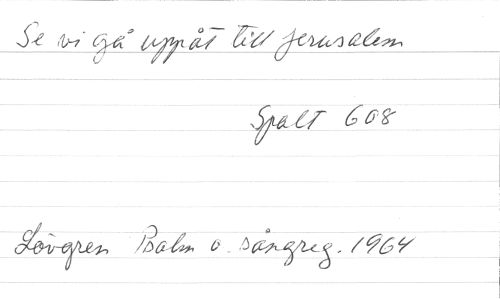 Se vi gå uppåt till Jerusalem
Spalt 608
Lövgren Psalm o. sångreg. 1964